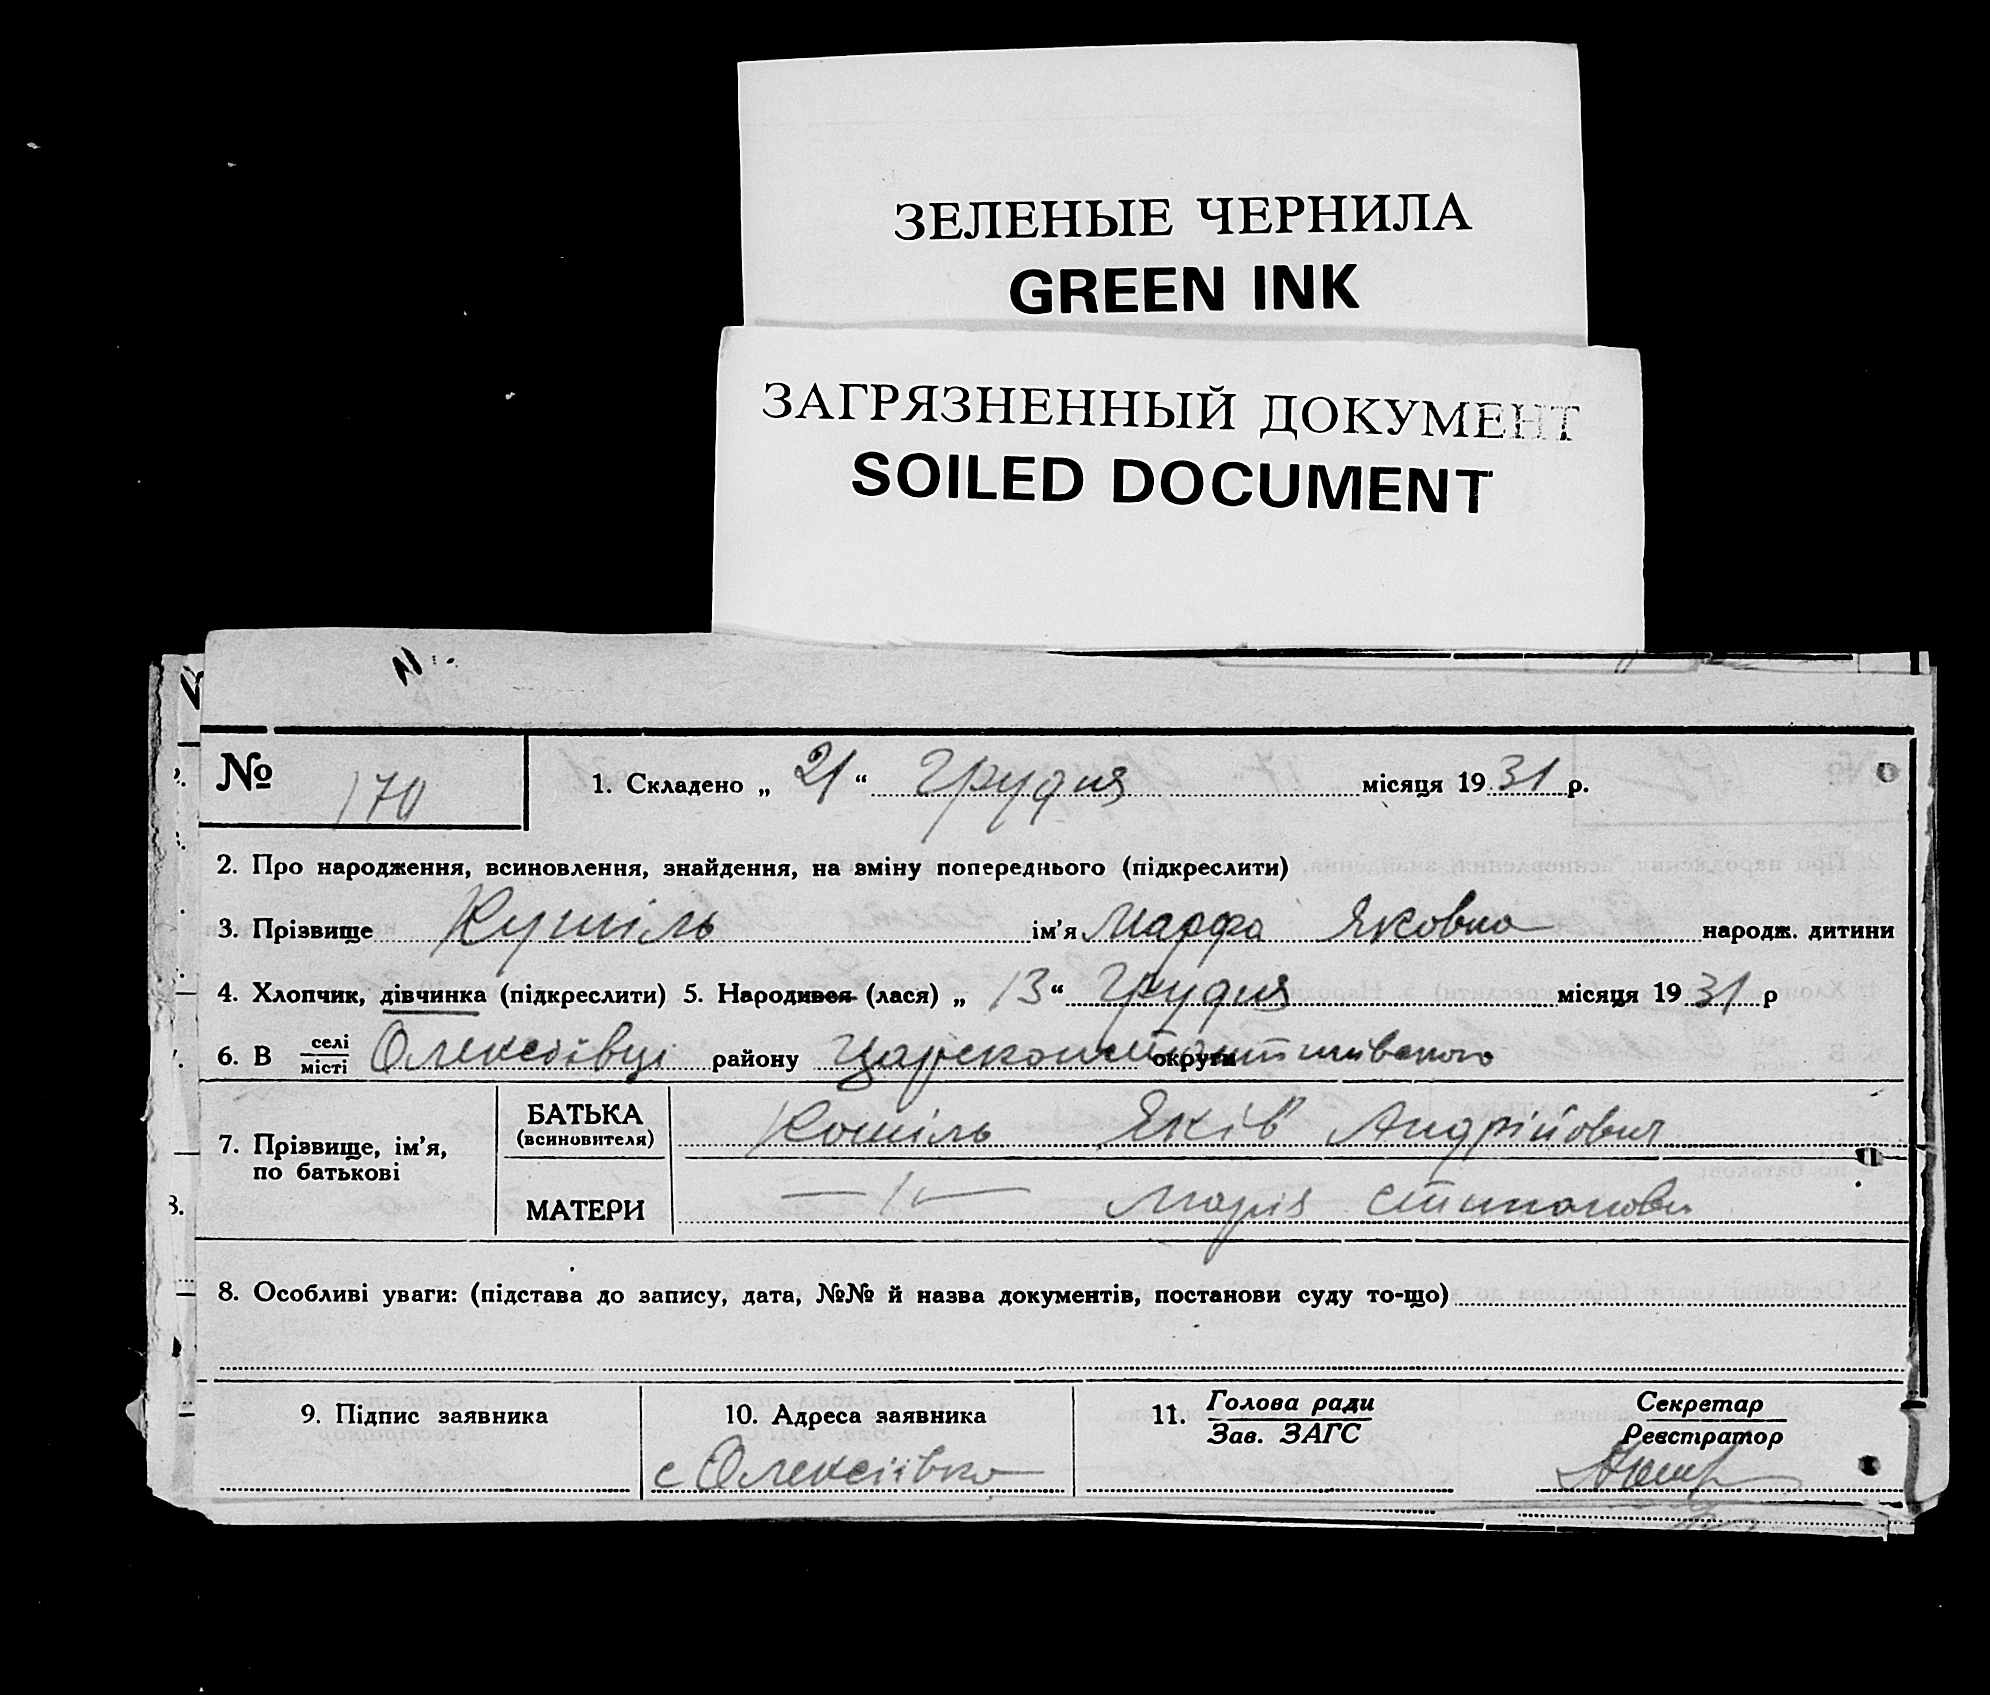 ЗЕЛЕНЫЕ ЧЕРНИЛА
GREEN INK
ЗАГРЯЗНЕННЫЙ ДОКУМЕНТ
SOILED DOCUMENT
№ 170
1. Складено „ 21 “ Грудня місяця 1931 р.
2. Про народження, всиновлення, знайдення, на зміну попереднього (підкреслити)
3. Прізвище Кушіль ім'я Марфа Яковна народж. дитини
4. Хлопчик, дівчинка (підкреслити) 5. Народився (лася) „ 13 “ Грудня місяця 1931 р
6. В селі місті Олексіївці району Царсконстантинівського округи
7. Прізвище, ім'я, по батькові
БАТЬКА (всиновителя) Кошіль Яків Андрійович
МАТЕРИ —"— Марія
8. Особливі уваги: (підстава до запису, дата, №№ й назва документів, постанови суду то-що)
9. Підпис заявника
10. Адреса заявника
с Олексіївка
11. Голова ради
Зав. ЗАГС
Секретар
Реєстратор